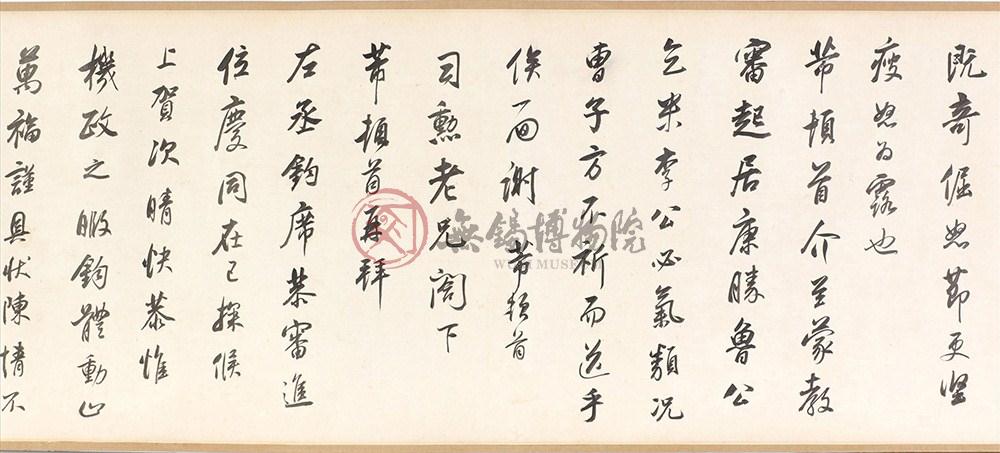 既奇倔莭更堅
瘦为露也
芾頓首介至蒙教
審起居康勝魯公
乞米李公必氣類况
曹子方不祈而送乎
俟面謝 芾頓首
司勲老兄閤下
芾頓首再拜
左丞鈞席恭審進
位慶同在已探候
上賀次晴快恭惟
機政之暇鈞體動止
萬福謹具状陳情不
無錫博物院
WUXI MUSEUM